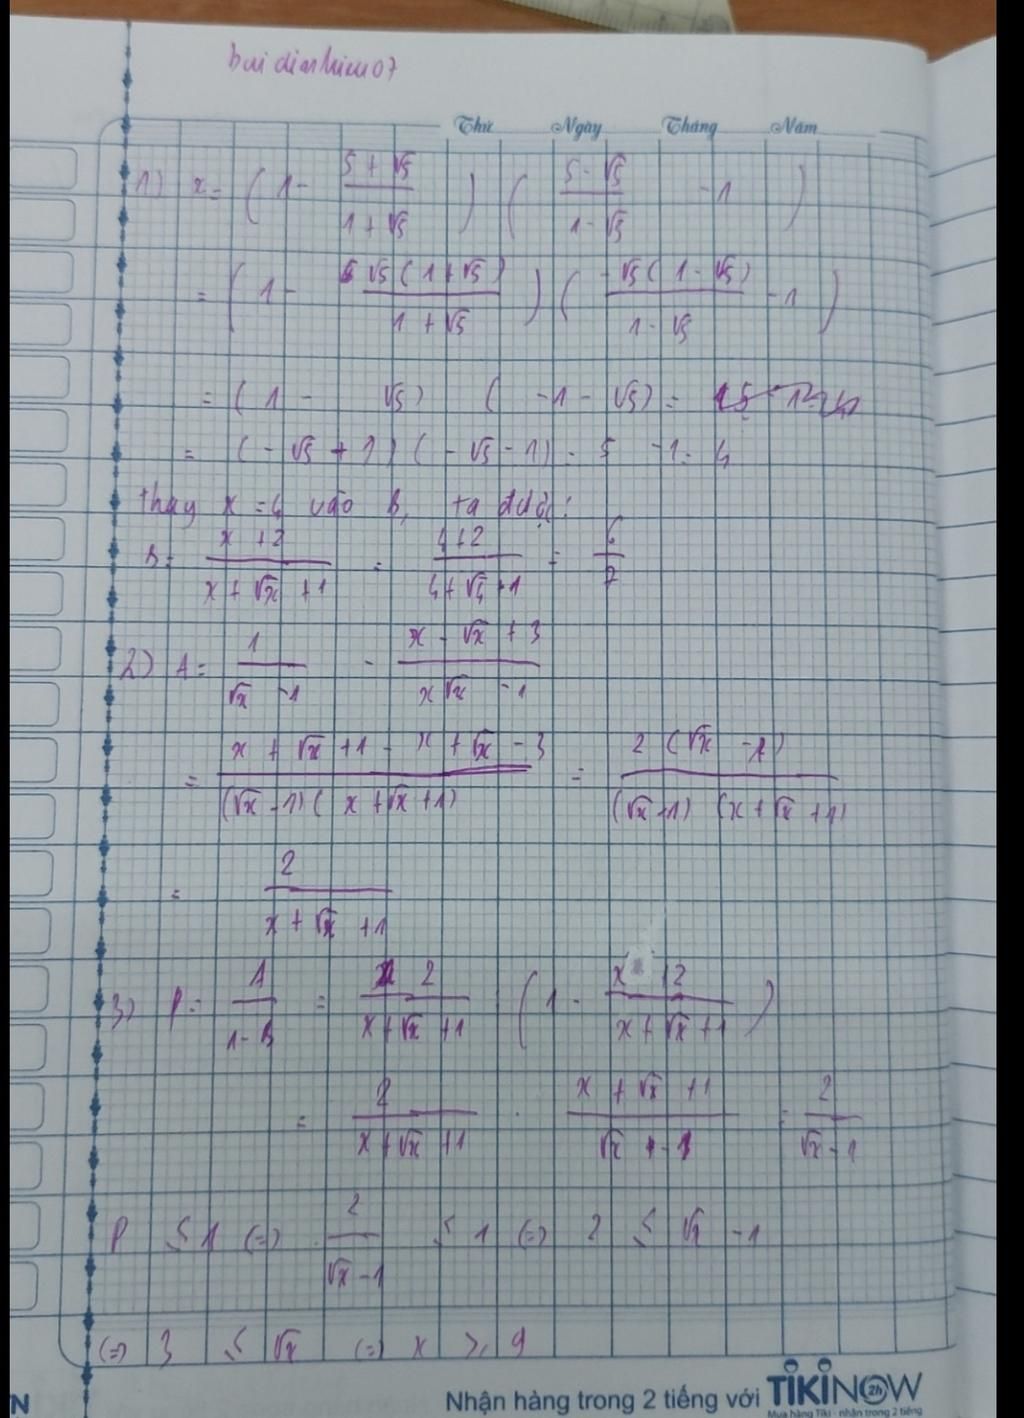 Thứ Ngày Tháng Năm
1) x = ( 1 - (5 + √5)/(1 + √5) ) ( (5 - √5)/(1 - √5) - 1 )
= ( 1 - √5(1 + √5)/(1 + √5) ) ( -√5(1 - √5)/(1 - √5) - 1 )
= (1 - √5) (-1 - √5) =
= (-√5 + 1) (-√5 - 1) = 5 - 1 = 4
thay x = 4 vào B, ta được:
B = (x + 2)/(x + √x + 1) = (4 + 2)/(4 + √4 + 1) = 6/7
2) A = 1/(√x - 1) - (x - √x + 3)/(x√x - 1)
= (x + √x + 1 - x + √x - 3)/((√x - 1)(x + √x + 1)) = 2(√x - 1)/((√x - 1)(x + √x + 1))
= 2/(x + √x + 1)
3) P = A/(1 - B) = 2/(x + √x + 1) : ( 1 - (x + 2)/(x + √x + 1) )
= 2/(x + √x + 1) . (x + √x + 1)/(√x - 1) = 2/(√x - 1)
P ≤ 1 (=) 2/(√x - 1) ≤ 1 (=) 2 ≤ √x - 1
(=) 3 ≤ √x (=) x ≥ 9
N
Nhận hàng trong 2 tiếng với TIKINOW 2h
Mua hàng Tiki - nhận trong 2 tiếng